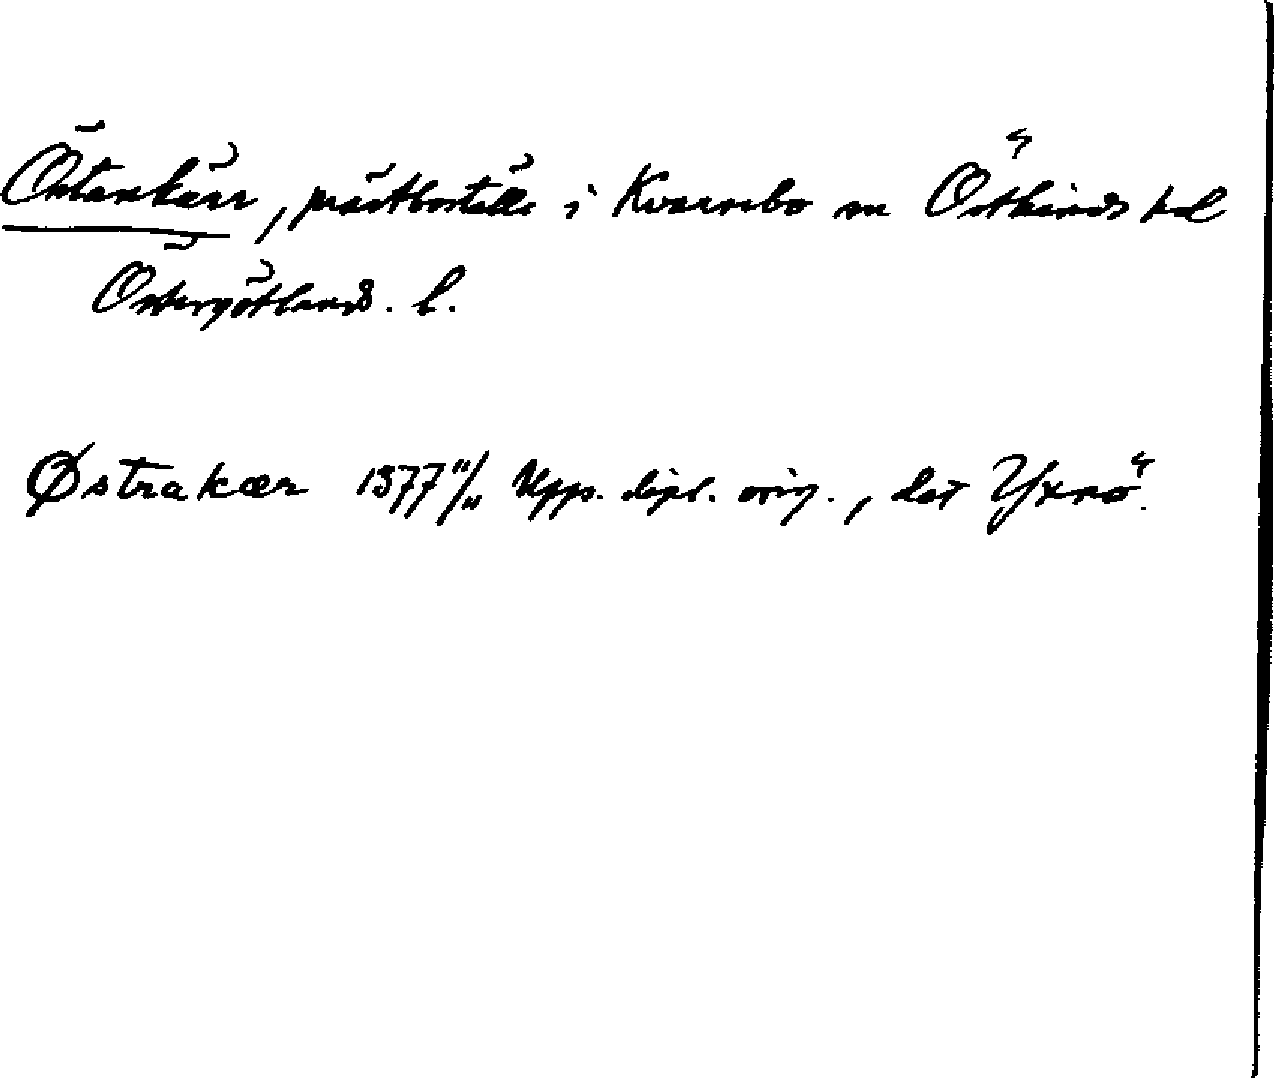 Östankärr, prästboställe i Kvarsebo sn Östkinds hd
Östergötlands. l.
Østrakær 1377 11/11 Upp. dipl. orig., dat Yxnö.